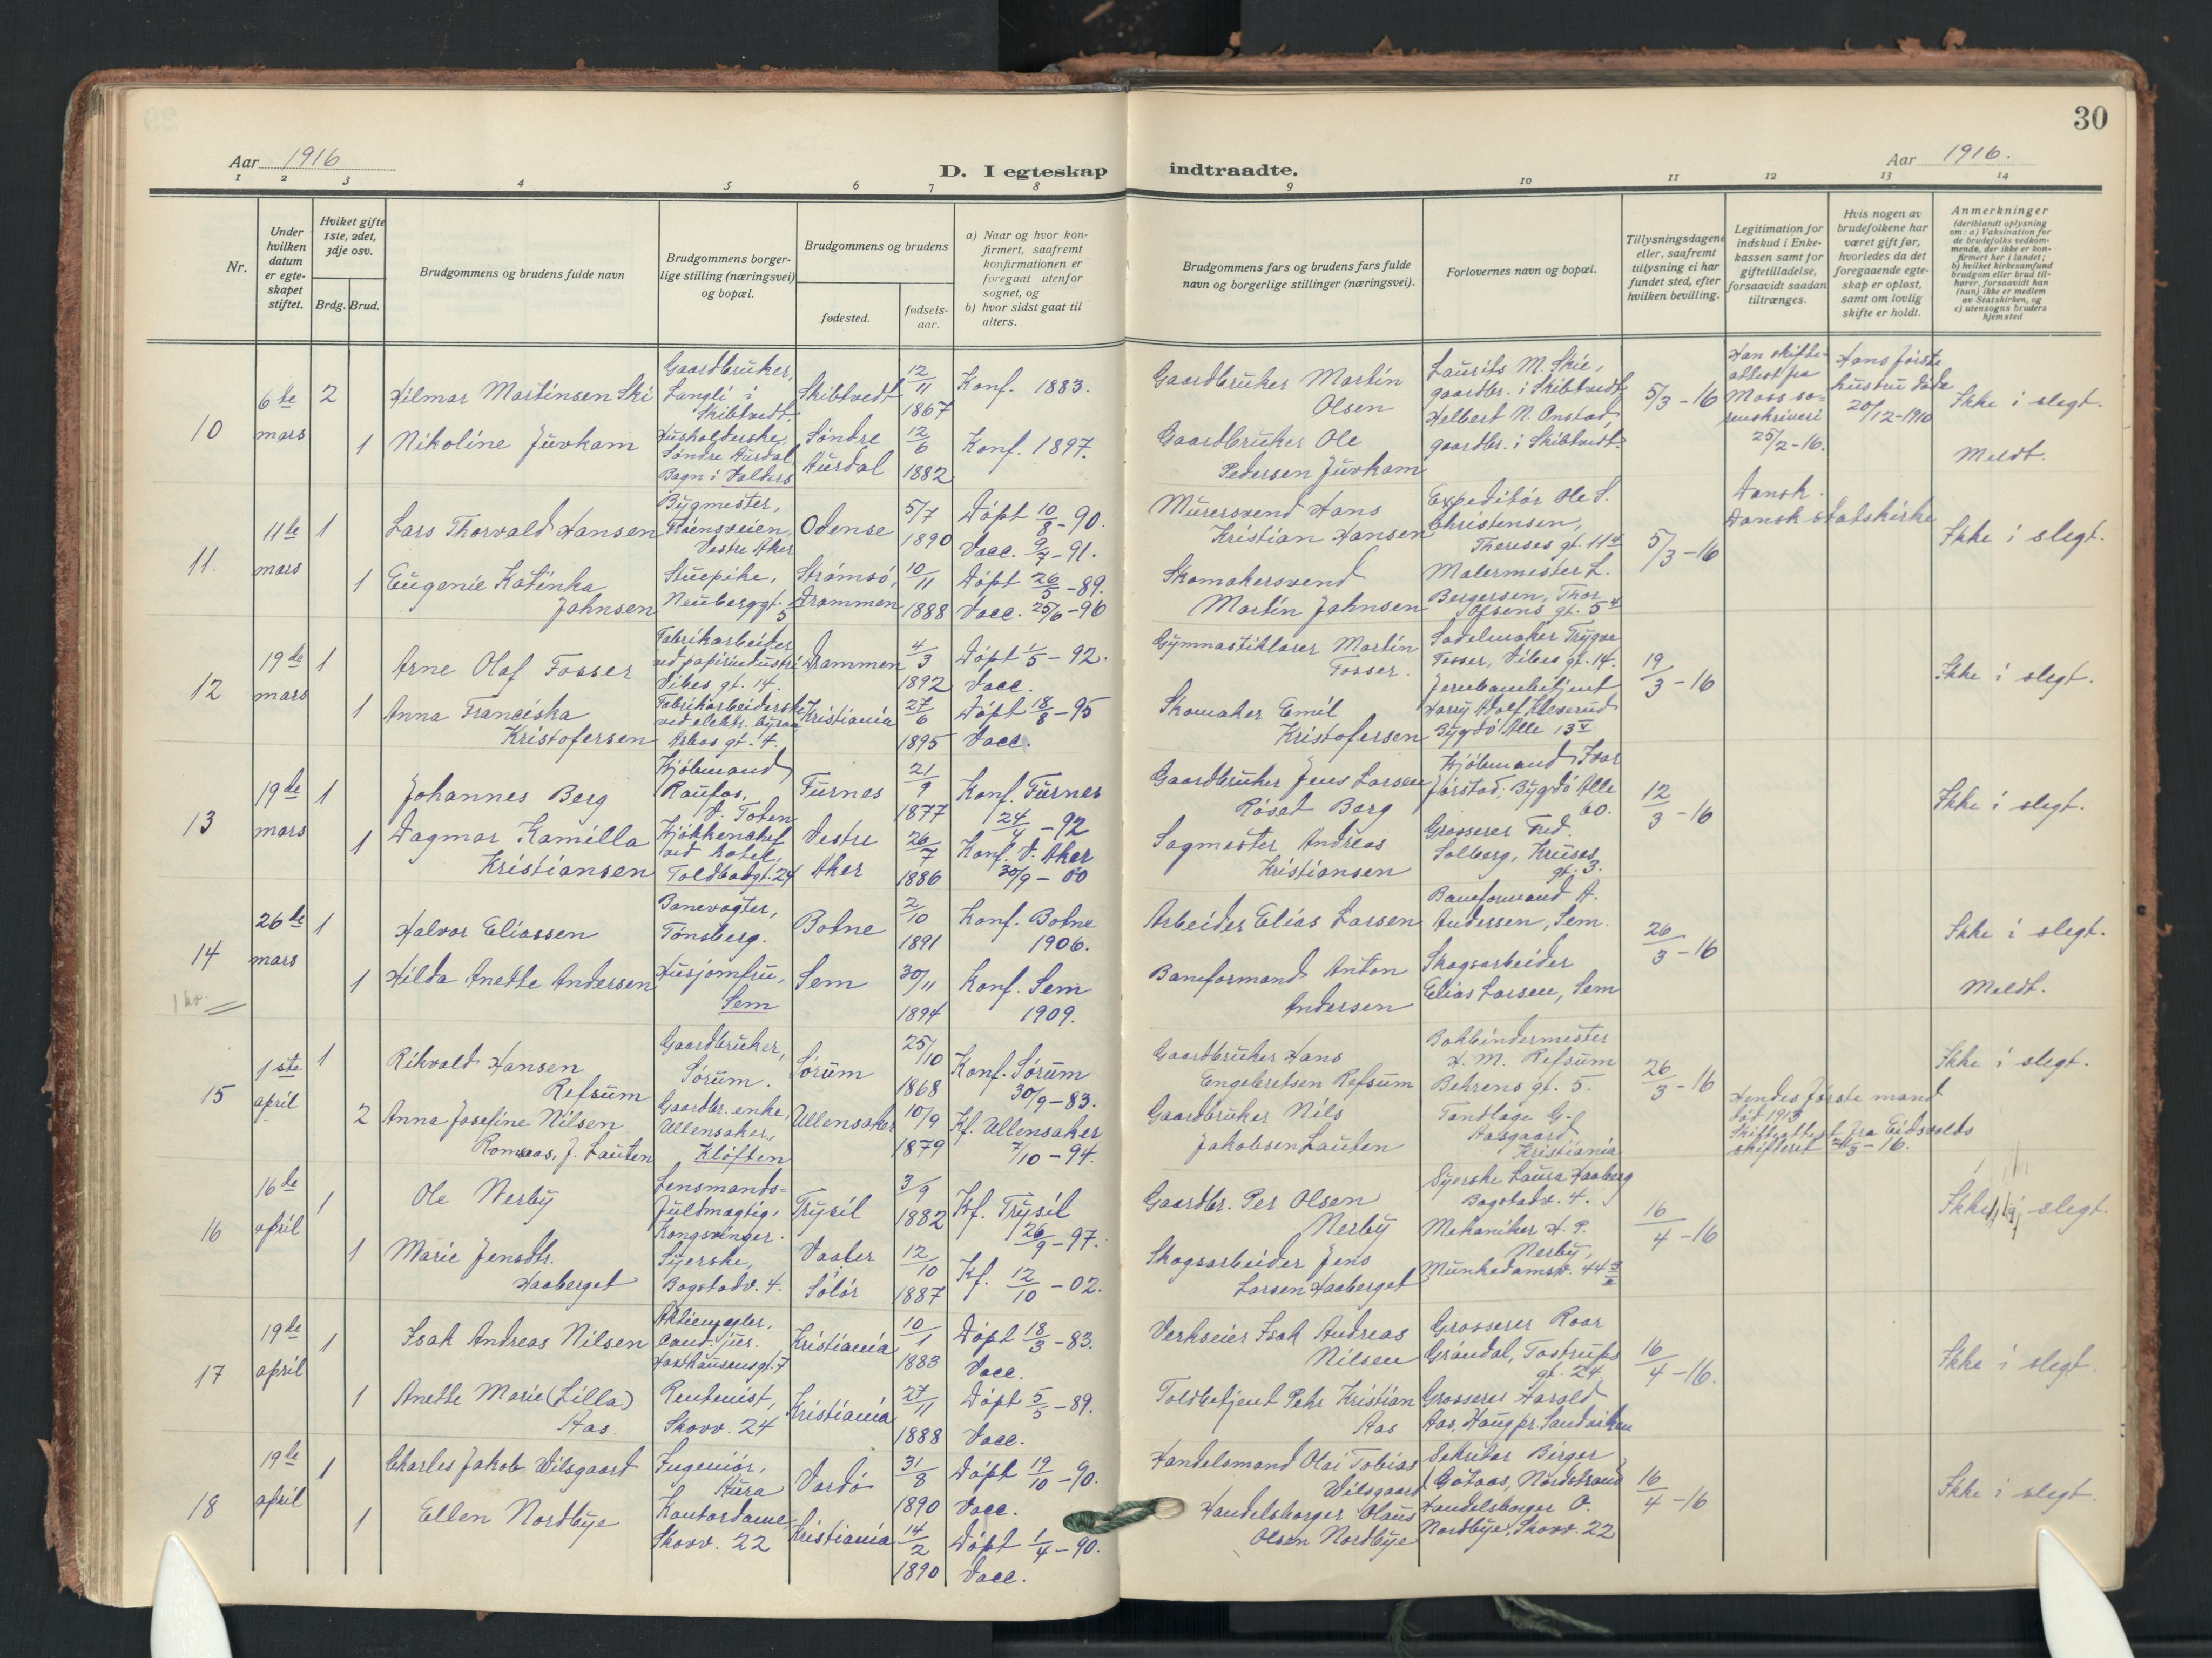 30
Aar 1916
D. I egteskap indtraadte.
Aar 1916.
1 2 3 4 5 6 7 8 9 10 11 12 13 14
Nr.
Under hvilken datum er egteskapet stiftet.
Hvilket gifte 1ste, 2det, 3dje osv.
Brdg. Brud.
Brudgommens og brudens fulde navn
Brudgommens borgerlige stilling (næringsvei) og bopæl.
Brudgommens og brudens
fødested.
fødselsaar.
a) Naar og hvor konfirmert, saafremt konfirmationen er foregaat utenfor sognet, og
b) hvor sidst gaat til alters.
Brudgommens fars og brudens fars fulde navn og borgerlige stillinger (næringsvei).
Forlovernes navn og bopæl.
Tillysningsdagene eller, saafremt tillysning ei har fundet sted, efter hvilken bevilling.
Legitimation for indskud i Enkekassen samt for giftetilladelse, forsaavidt saadan tiltrænges.
Hvis nogen av brudefolkene har været gift før, hvorledes da det foregaaende egteskap er opløst, samt om lovlig skifte er holdt.
Anmerkninger
(deriblandt oplysning om: a) Vaksination for de brudefolks vedkommende, der ikke er konfirmert her i landet; b) hvilket kirkesamfund brudgom eller brud tilhører, forsaavidt han (hun) ikke er medlem av Statskirken, og c) utensogns bruders hjemsted
10
6te mars
2
Hilmar Martinsen Ski
Gaardbruker, Langli i Skibtvedt.
Skibtvedt
12/11 1867
Konf. 1883.
Gaardbruker Martin Olsen
Laurits M. Skie, gaardbr. i Skibtvedt,
Helbert N. Onstad, gaardbr. i Skibtvedt.
5/3-16
Han skifteattest fra Moss sorenskriveri 25/2-16.
Hans første hustru døde 20/12-1910
Ikke i slegt.
Meldt.
1
Nikoline Juvkam
Husholderske, Søndre Aurdal Bagn i Valders
Søndre Aurdal
12/6 1882
Konf. 1897.
Gaardbruker Ole Pedersen Juvkam
11.
11te mars
1
Lars Thorvald Hansen
Bygmester, Vestre Aker
Odense
5/7 1890
Døpt 10/8-90.
Vacc. 9/7-91.
Murersvend Hans Kristian Hansen
Expeditør Ole S. Christensen, Thereses gt. 11
5/3-16
Dansk.
Dansk statskirke
Ikke i slegt.
1
Eugenie Katinka Jahnsen
Stuepike, Neuberggt. 5
Strømsø, Drammen
10/11 1888
Døpt 26/5-89.
Vacc. 25/6-96
Skomakersvend Martin Jahnsen
Malermester L. Borgersen, Thor Olsens gt. 5
12
19de mars
1
Arne Olaf Fosser
Fabrikarbeider ved papirindustri Vibes gt. 14.
Drammen
4/3 1892
Døpt 1/5-92.
Vacc.
Gymnastiklærer Martin Fosser.
Sadelmaker Trygve Fosser, Vibes gt. 14.
19/3-16
Ikke i slegt.
1
Anna Franciska Kristofersen
Fabrikarbeiderske ved elektr. byraa Arbos gt. 4.
Kristiania
27/6 1895
Døpt 18/8-95
Vacc.
Skomaker Emil Kristofersen
Jernbanebetjent Harry Adolf Kleverud Bygdø Alle 13
13
19de mars
1
Johannes Berg
Kjøbmand, Raufos, V. Toten
Furnes
21/9 1877
Konf. Furnes 24/4-92
Gaardbruker Jens Larsen Røset Berg
Kjøbmand Ivar Jørstad, Bygdø Alle 60.
12/3-16
Ikke i slegt.
1
Dagmar Kamilla Kristiansen
Kjøkkenchef ved hotel, Toldbodgt. 24
Vestre Aker
26/7 1886
Konf. V. Aker 30/9-00
Sagmester Andreas Kristiansen
Grosserer Fred. Solberg, Kruses gt. 3.
14
26de mars
1
Halvor Eliassen
Banevogter, Tønsberg.
Botne
2/10 1891
Konf. Botne 1906.
Arbeider Elias Larsen
Baneformand A. Andersen, Sem.
26/3-16
Ikke i slegt.
Meldt.
1
Hilda Anette Andersen
Husjomfru, Sem
Sem
30/11 1894
Konf. Sem 1909.
Baneformand Anton Andersen
Skogsarbeider Elias Larsen, Sem
15
1ste april
1
Rikvald Hansen Refsum
Gaardbruker, Sørum.
Sørum
25/10 1868
Konf. Sørum 30/9-83.
Gaardbruker Hans Engebretsen Refsum
Bokbindermester H. M. Refsum Behrens gt. 5.
26/3-16
Hendes første mand død 1913
Skifteattest fra Eidsvolds skifteret 24/3-16.
Ikke i slegt.
2
Anna Josefine Nilsen Romsaas, f. Lauten
Gaardbr. enke, Ullensaker, Kløften
Ullensaker
10/9 1879
Kf. Ullensaker 7/10-94.
Gaardbruker Nils Jakobsen Lauten
Tandlæge G. Aasgaard Kristiania
16
16de april
1
Ole Nerby
Lensmandsfuldmægtig, Kongsvinger.
Trysil
3/9 1882
Kf. Trysil 26/9-97.
Gaardbr. Per Olsen Nerby
Syerske Laura Haaberg Bogstadv. 4.
16/4-16
Ikke i slegt
1
Marie Jensdtr. Haaberget
Syerske, Bogstadv. 4.
Vaaler Solør
12/10 1887
Kf. 12/10-02.
Skogsarbeider Jens Larsen Haaberget
Mekaniker H. P. Nerby, Munkedamsv. 44
17
19de april
1
Isak Andreas Nilsen
Aktiemægler, cand. jur. Haxthausensgt. 7
Kristiania
10/1 1883
Døpt 18/3-83.
Vacc.
Verkseier Isak Andreas Nilsen
Grosserer Roar Grøndal, Tostrups gt. 24
16/4-16.
Ikke i slegt.
1
Anette Marie (Lilla) Aas.
Rentenist, Skovv. 24
Kristiania
27/11 1888
Døpt 5/5-89.
Vacc.
Toldbetjent Pehr Kristian Aas
Grosserer Harald Aas, Haug pr. Sandviken
18
19de april
1
Charles Jakob Wilsgaard
Ingeniør,
Vardø
31/8 1890
Døpt 19/10-90.
Vacc.
Handelsmand Olai Tobias Wilsgaard
Sekretær Birger Gotaas, Nordstrand
16/4-16
Ikke i slegt.
1
Ellen Nordbye
Kontordame, Skovv. 22
Kristiania
14/2 1890
Døpt 1/4-90.
Vacc.
Handelsborger Olaus Olsen Nordbye
Handelsborger O. Nordbye, Skovv. 22